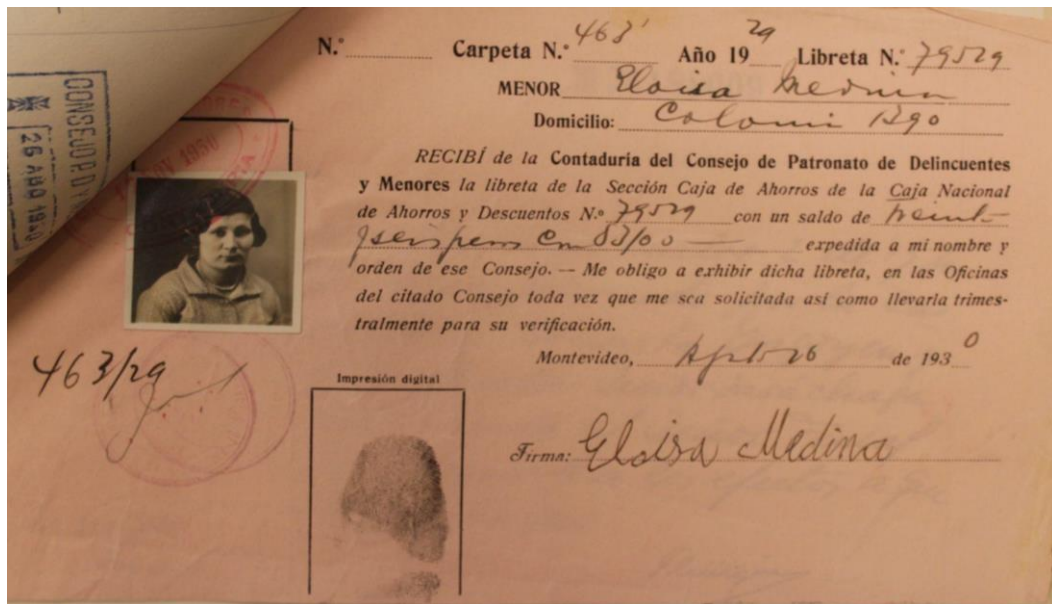 N.º Carpeta N.º 463 Año 19 29 Libreta N.º 79529
MENOR Eloisa Medina
Domicilio: Colonia 1290
RECIBÍ de la Contaduría del Consejo de Patronato de Delincuentes
y Menores la libreta de la Sección Caja de Ahorros de la Caja Nacional
de Ahorros y Descuentos N.º 79529 con un saldo de treinta
y seis pesos con 83/00 expedida a mi nombre y
orden de ese Consejo. — Me obligo a exhibir dicha libreta, en las Oficinas
del citado Consejo toda vez que me sea solicitada así como llevarla trimes-
tralmente para su verificación.
Montevideo, Agosto 26 de 1930
463/29
Impresión digital
Firma: Eloisa Medina
CONSEJO P. D Y
26 AGO 1940